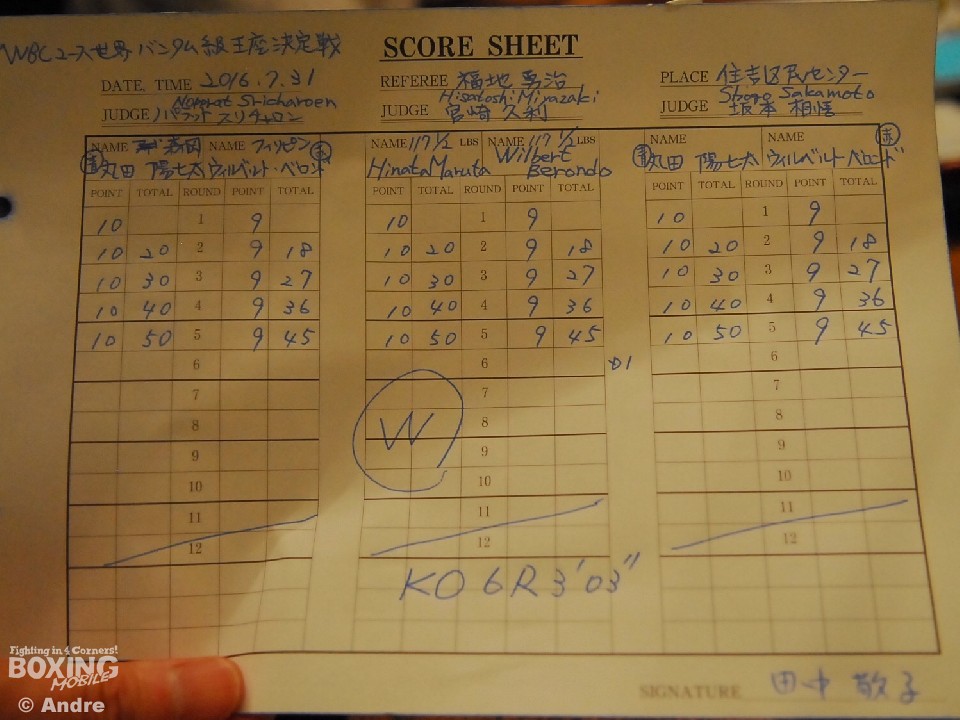 WBCユース世界バンタム級王座決定戦
SCORE SHEET
DATE, TIME 2016.7.31 REFEREE 福地勇治 PLACE 住吉区民センター
Hisatoshi Miyazaki Shogo Sakamoto
JUDGE JUDGE 宮崎久利 JUDGE 坂本相悟
NAME NAME フィリピン NAME 117 1/2 LBS NAME 117 1/2 LBS NAME NAME 赤
丸田 陽七太 ウィルベルト・ベロンド Hinata Maruta Wilbert Berondo 丸田 陽七太 ウィルベルト・ベロンド
POINT TOTAL ROUND POINT TOTAL POINT TOTAL ROUND POINT TOTAL POINT TOTAL ROUND POINT TOTAL
10 1 9 10 1 9 10 1 9
10 20 2 9 18 10 20 2 9 18 10 20 2 9 18
10 30 3 9 27 10 30 3 9 27 10 30 3 9 27
10 40 4 9 36 10 40 4 9 36 10 40 4 9 36
10 50 5 9 45 10 50 5 9 45 10 50 5 9 45
6 6 6
7 7 7
8 W 8 8
9 9 9
10 10 10
11 11 11
12 12 12
KO 6R 3'03"
SIGNATURE 田中 敬子
Fighting in 4 Corners!
BOXING
MOBILE
© Andre